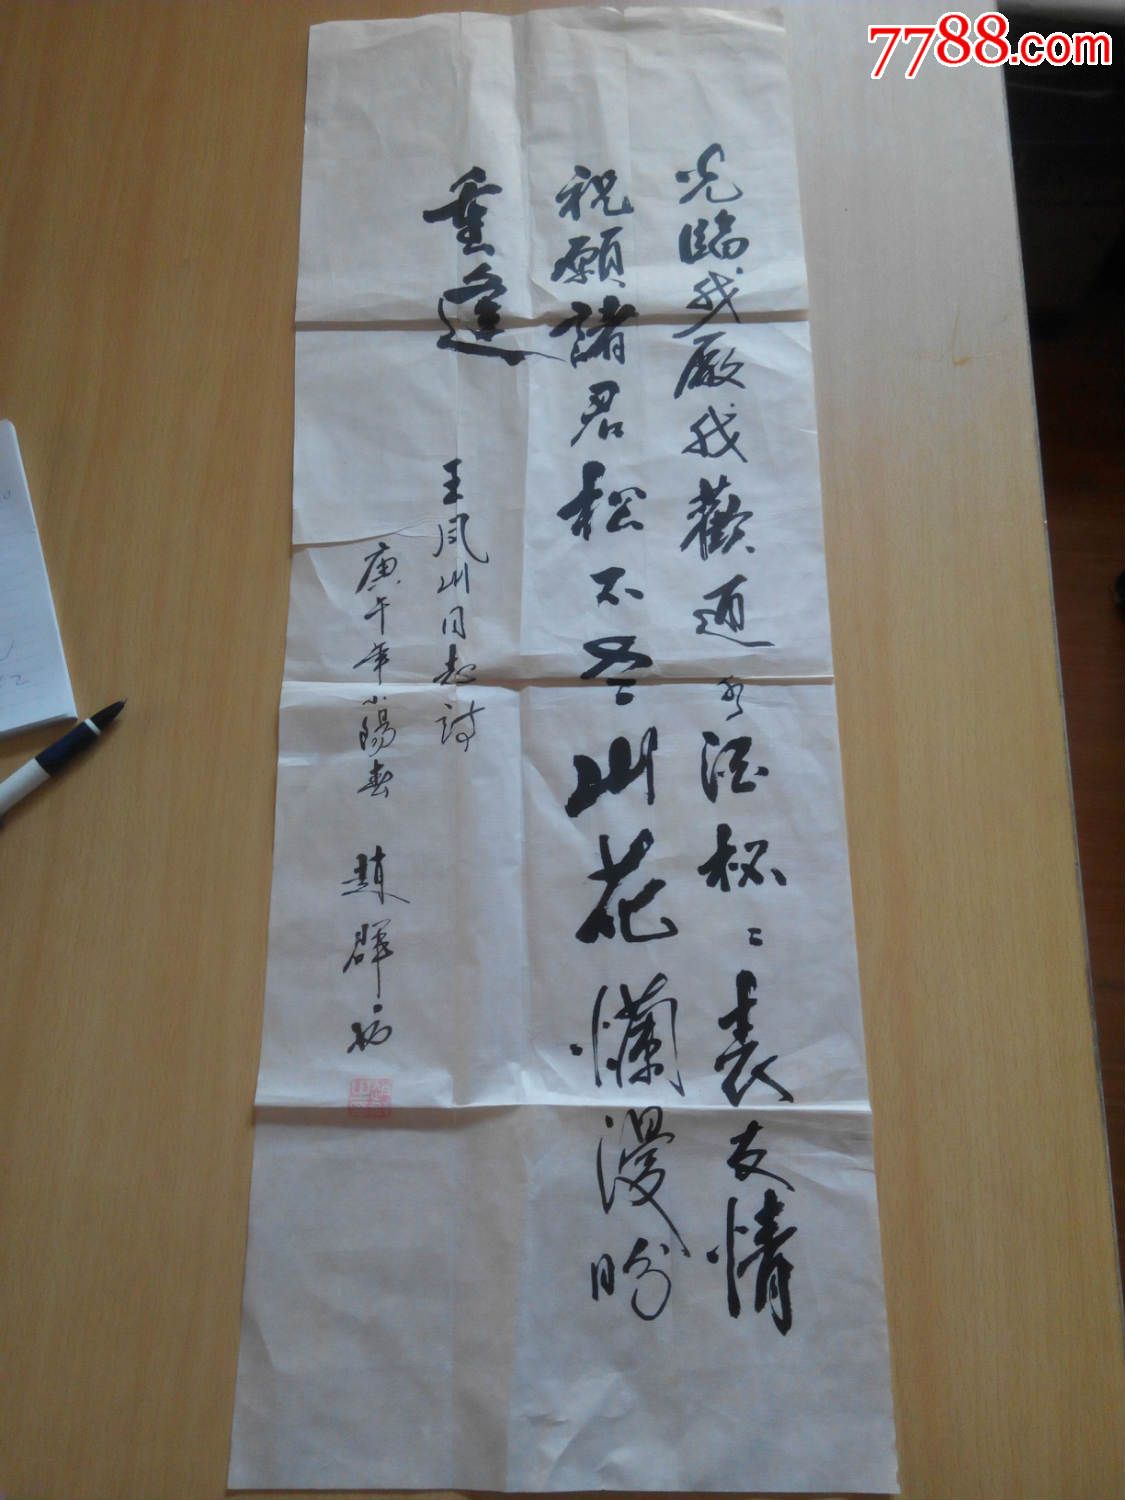 7788.com
光臨我廠我歡迎水酒杯々表友情
祝願諸君松不老山花爛漫盼
重逢 王凤山同志詩
庚午年小陽春 趙群